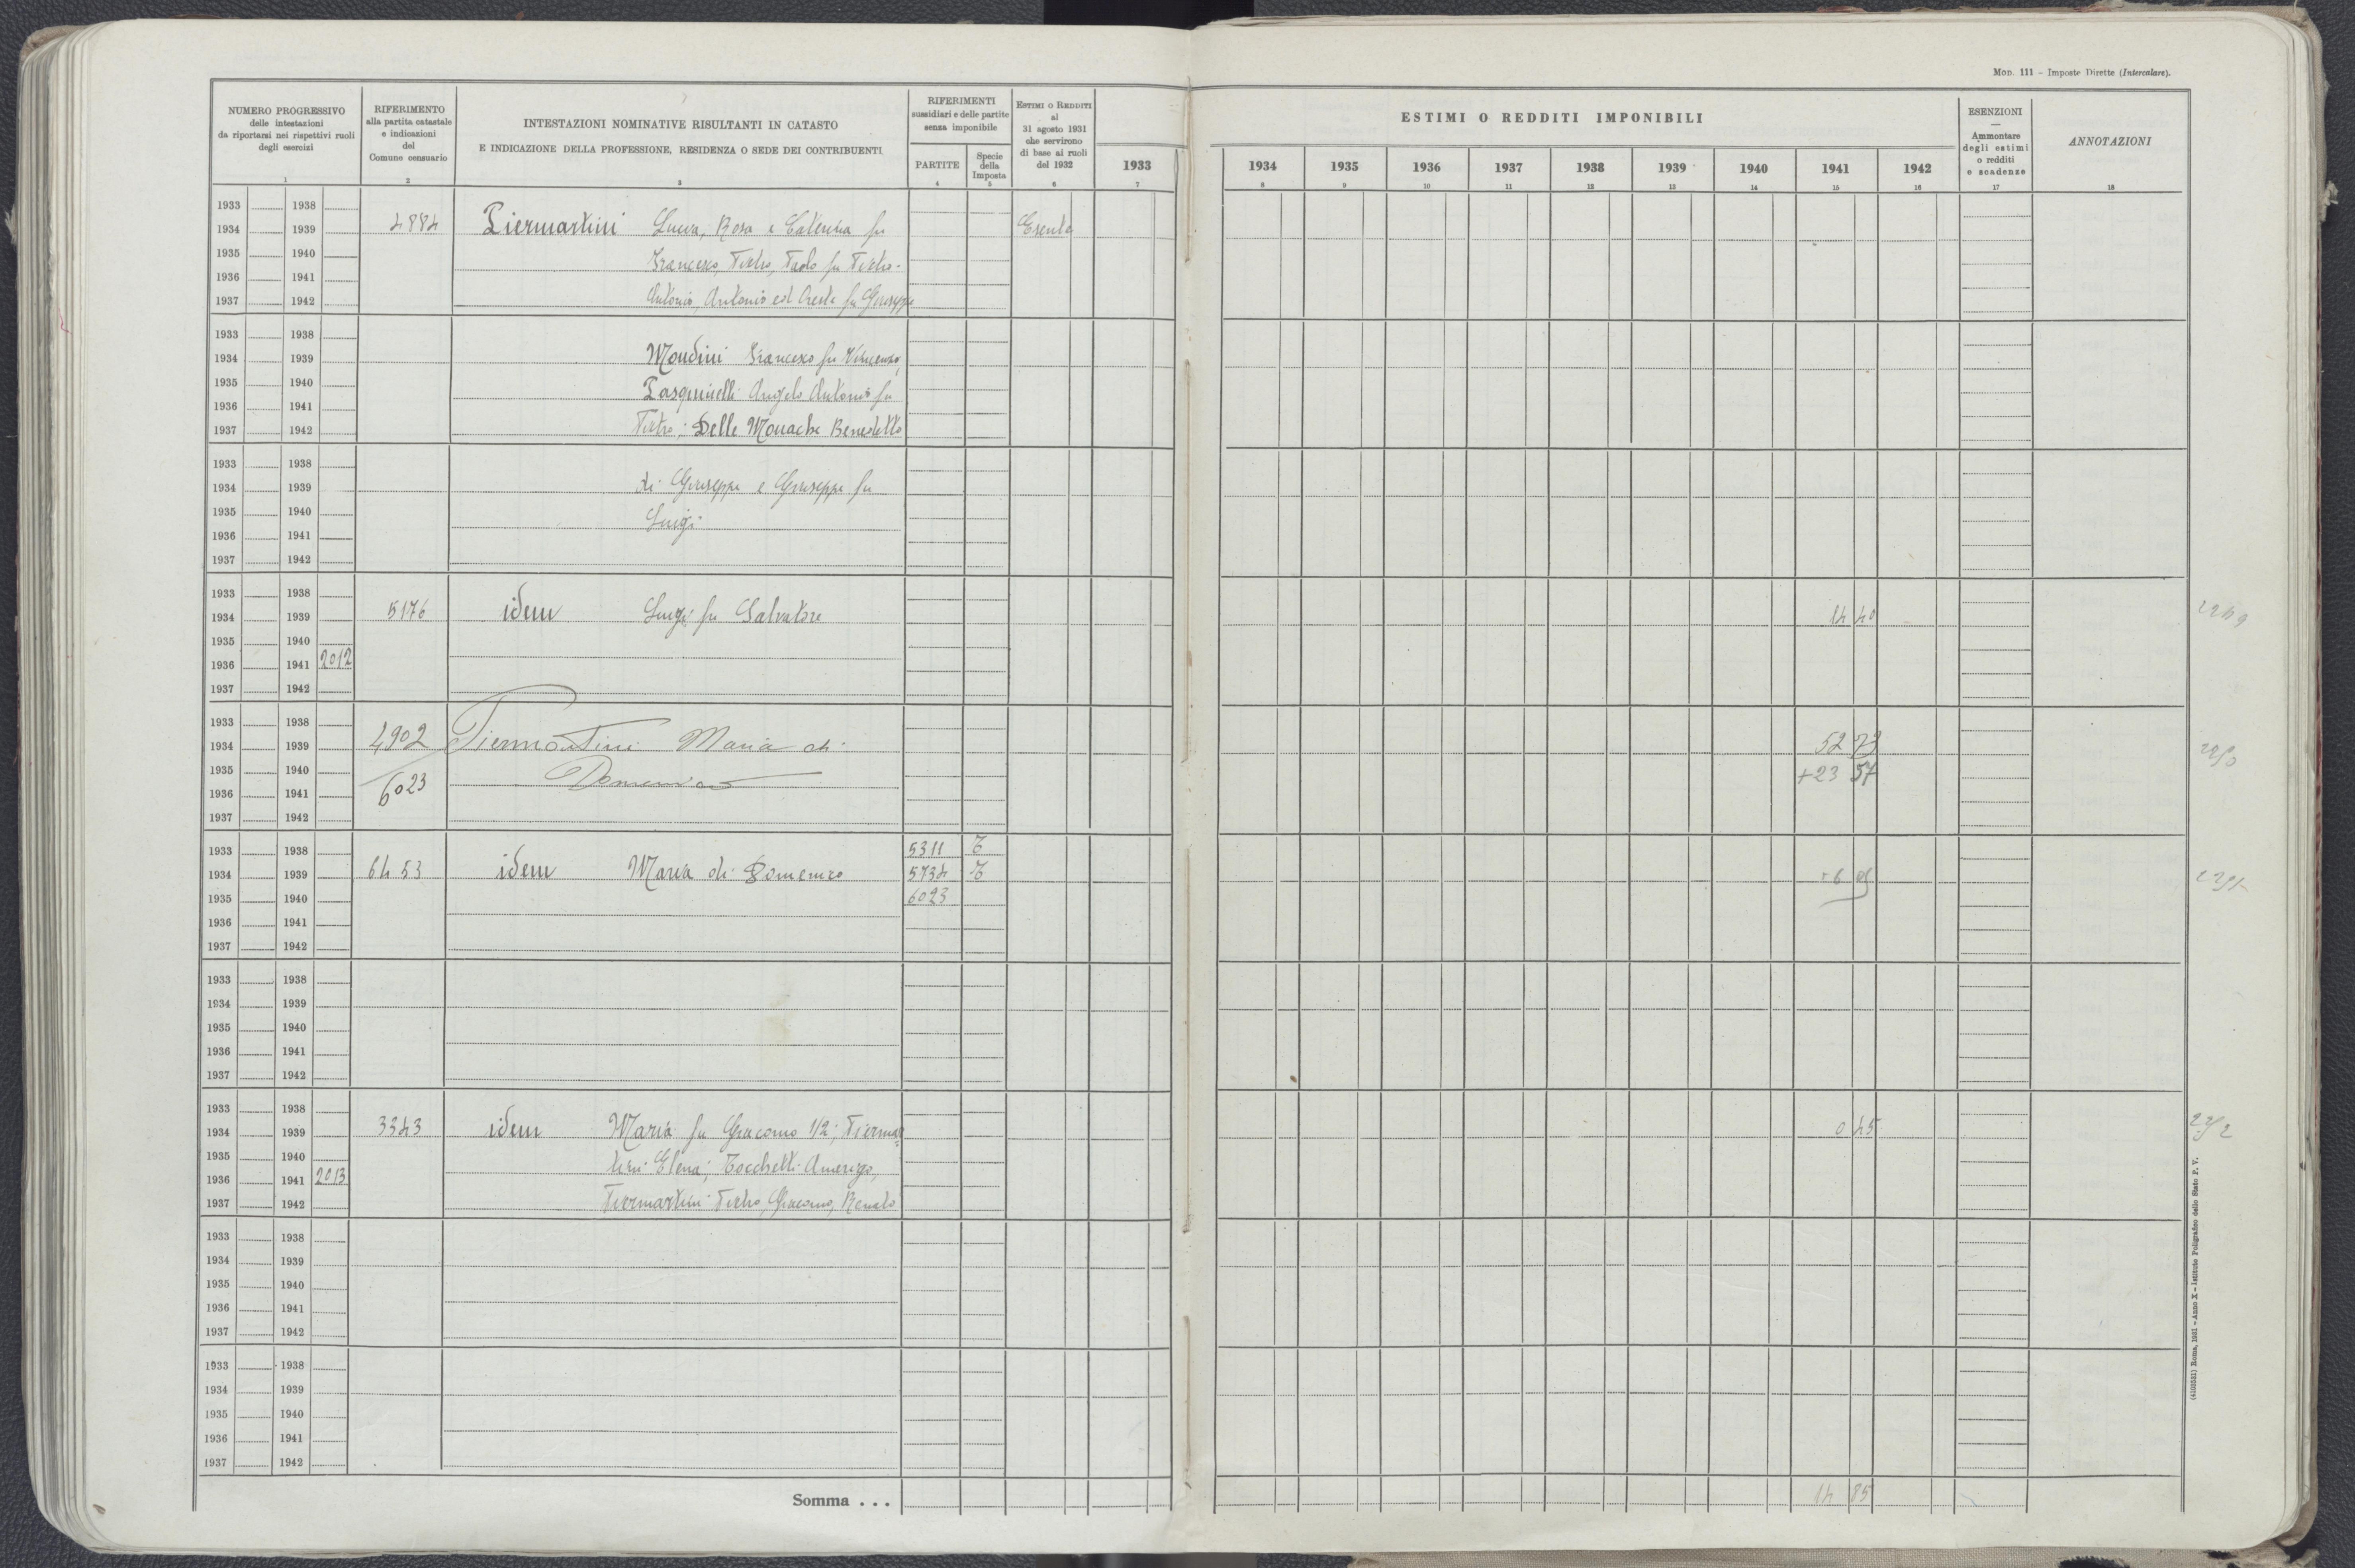 Mod. 111 - Imposte Dirette (Intercalare).
NUMERO PROGRESSIVO
delle intestazioni
da riportarsi nei rispettivi ruoli
degli esercizi
1
RIFERIMENTO
alla partita catastale
e indicazioni
del
Comune censuario
2
INTESTAZIONI NOMINATIVE RISULTANTI IN CATASTO
E INDICAZIONE DELLA PROFESSIONE, RESIDENZA O SEDE DEI CONTRIBUENTI
3
RIFERIMENTI
sussidiari e delle partite
senza imponibile
PARTITE
4
Specie
della
Imposta
5
ESTIMI O REDDITI
al
31 agosto 1931
che servirono
di base ai ruoli
del 1932
6
1933
7
ESTIMI O REDDITI IMPONIBILI
1934 1935 1936 1937 1938 1939 1940 1941 1942
8 9 10 11 12 13 14 15 16
ESENZIONI
—
Ammontare
degli estimi
o redditi
e scadenze
17
ANNOTAZIONI
18
1933 1938
1934 1939 4884 Piermartini Luisa, Rosa e Caterina fu Esente
1935 1940 Francesco, Pietro, Paolo fu Pietro-
1936 1941
1937 1942 Antonio, Antonio ed Oreste fu Giuseppe
1933 1938
1934 1939 Mondini Francesco fu Vincenzo,
1935 1940
1936 1941 Pasquinelli Angelo Antonio fu
1937 1942 Pietro; Delle Monache Benedetto
1933 1938
1934 1939 di Giuseppe e Giuseppe fu
1935 1940 Luigi
1936 1941
1937 1942
1933 1938
1934 1939 5176 idem Luigi fu Salvatore 14 40 2249
1935 1940
1936 1941 2012
1937 1942
1933 1938
1934 1939 4902 Piermartini Maria di 52 73
1935 1940 Domenico +23 57
1936 1941 6023
1937 1942
1933 1938 5311 T
1934 1939 6453 idem Maria di Domenico 5734 T
1935 1940 6023
1936 1941
1937 1942
1933 1938
1934 1939
1935 1940
1936 1941
1937 1942
1933 1938
1934 1939 3343 idem Maria fu Giacomo 1/2; Piermar 0 45
1935 1940
1936 1941 2013 tini Elena; Tocchetti Amerigo,
1937 1942 Piermartini Pietro, Giacomo, Renato
1933 1938
1934 1939
1935 1940
1936 1941
1937 1942
1933 1938
1934 1939
1935 1940
1936 1941
1937 1942
Somma . . . 14 85
(4103531) Roma, 1931 - Anno X - Istituto Poligrafico dello Stato P. V.